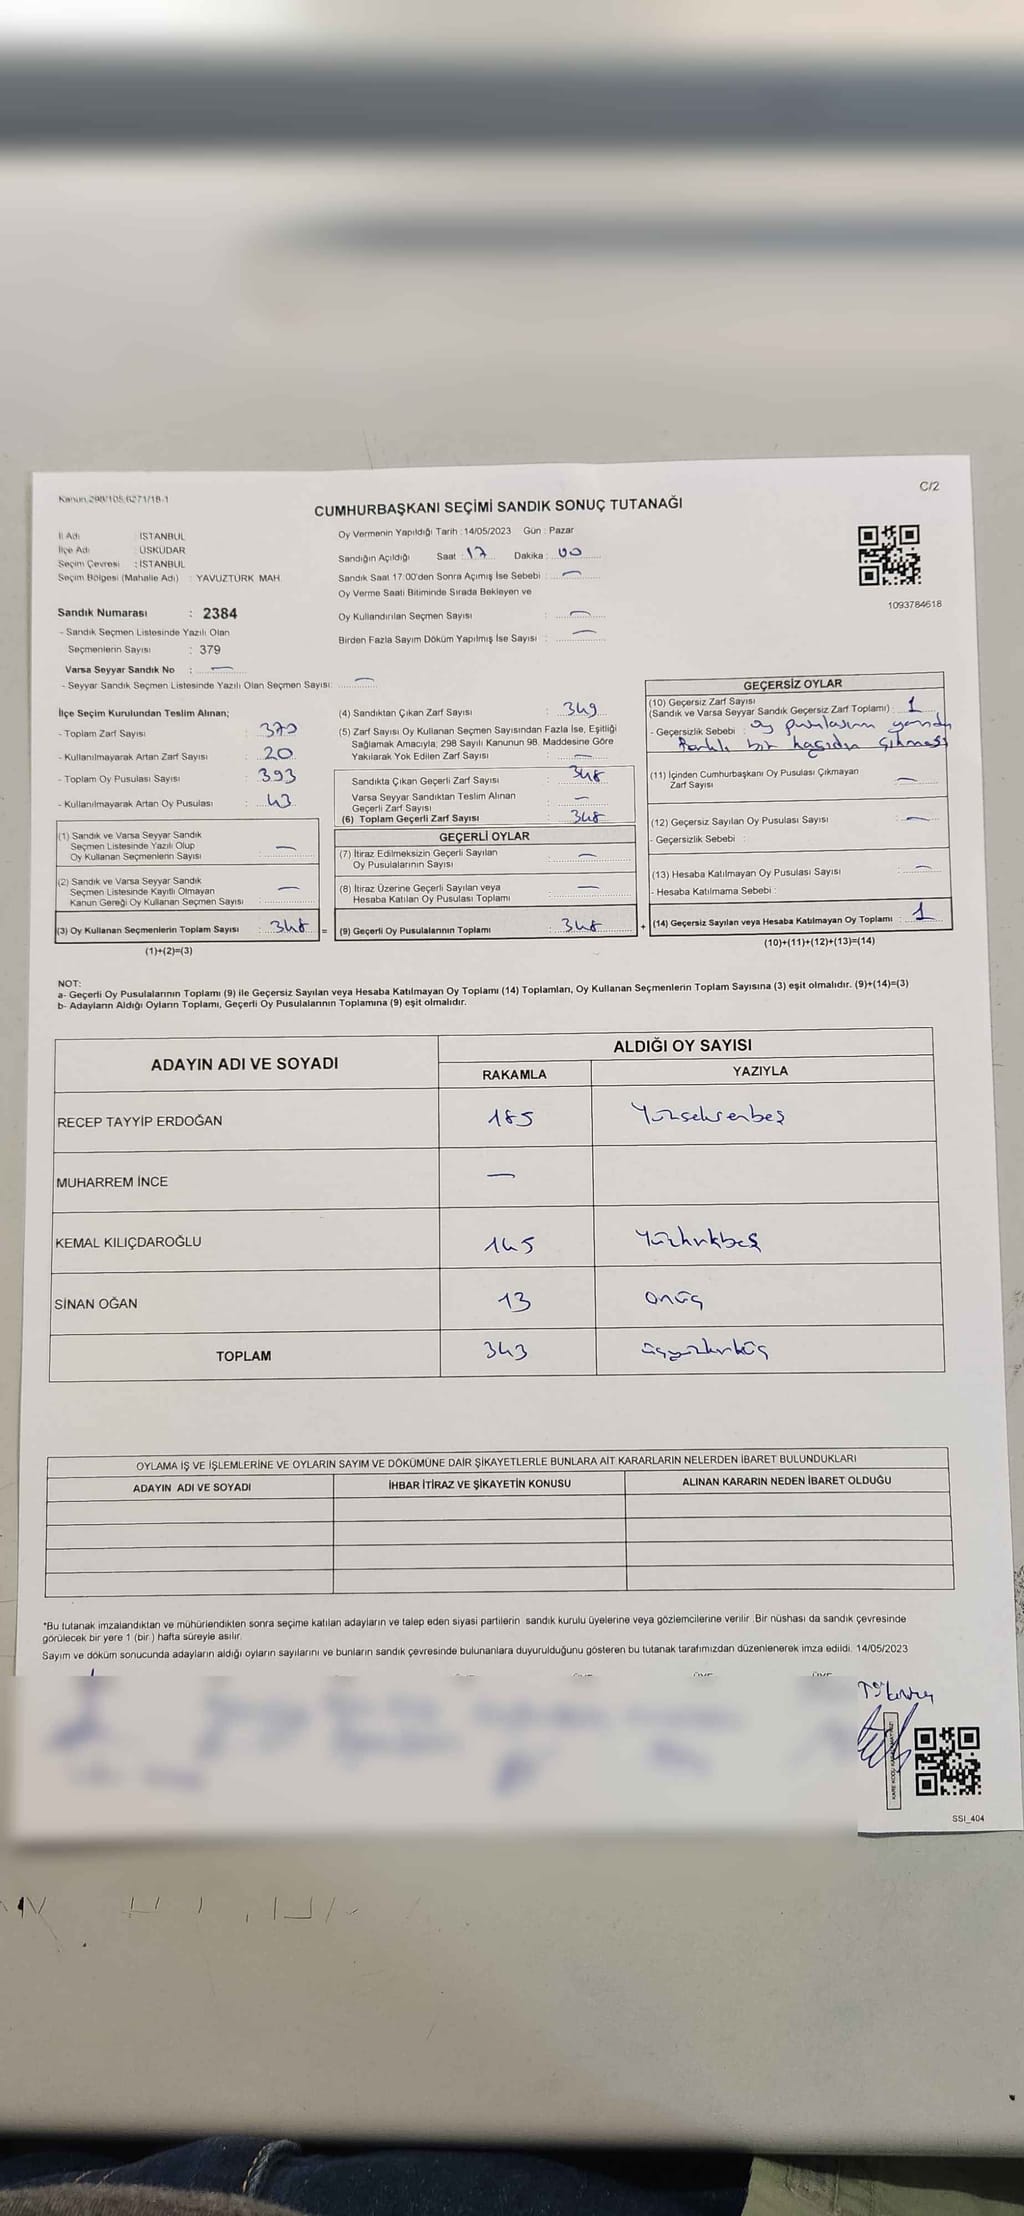 Kanun:298/105,6271/18-1
C/2
CUMHURBAŞKANI SEÇİMİ SANDIK SONUÇ TUTANAĞI
İl Adı : İSTANBUL
İlçe Adı : ÜSKÜDAR
Seçim Çevresi : İSTANBUL
Seçim Bölgesi (Mahalle Adı) : YAVUZTÜRK MAH.
Sandık Numarası : 2384
- Sandık Seçmen Listesinde Yazılı Olan
Seçmenlerin Sayısı : 379
Varsa Seyyar Sandık No : —
- Seyyar Sandık Seçmen Listesinde Yazılı Olan Seçmen Sayısı: —
Oy Vermenin Yapıldığı Tarih : 14/05/2023 Gün : Pazar
Sandığın Açıldığı Saat : 17 Dakika : 00
Sandık Saat 17:00'den Sonra Açımış İse Sebebi : —
Oy Verme Saati Bitiminde Sırada Bekleyen ve
Oy Kullandırılan Seçmen Sayısı : —
Birden Fazla Sayım Döküm Yapılmış İse Sayısı : —
1093784618
İlçe Seçim Kurulundan Teslim Alınan;
- Toplam Zarf Sayısı : 370
- Kullanılmayarak Artan Zarf Sayısı : 20
- Toplam Oy Pusulası Sayısı : 393
- Kullanılmayarak Artan Oy Pusulası : 43
(1) Sandık ve Varsa Seyyar Sandık
Seçmen Listesinde Yazılı Olup
Oy Kullanan Seçmenlerin Sayısı : —
(2) Sandık ve Varsa Seyyar Sandık
Seçmen Listesinde Kayıtlı Olmayan
Kanun Gereği Oy Kullanan Seçmen Sayısı : —
(3) Oy Kullanan Seçmenlerin Toplam Sayısı : 348 =
(1)+(2)=(3)
(4) Sandıktan Çıkan Zarf Sayısı : 349
(5) Zarf Sayısı Oy Kullanan Seçmen Sayısından Fazla İse, Eşitliği
Sağlamak Amacıyla; 298 Sayılı Kanunun 98. Maddesine Göre
Yakılarak Yok Edilen Zarf Sayısı : —
Sandıkta Çıkan Geçerli Zarf Sayısı : 348
Varsa Seyyar Sandıktan Teslim Alınan
Geçerli Zarf Sayısı : —
(6) Toplam Geçerli Zarf Sayısı : 348
GEÇERLİ OYLAR
(7) İtiraz Edilmeksizin Geçerli Sayılan
Oy Pusulalarının Sayısı : —
(8) İtiraz Üzerine Geçerli Sayılan veya
Hesaba Katılan Oy Pusulası Toplamı : —
(9) Geçerli Oy Pusulalarının Toplamı : 348 +
GEÇERSİZ OYLAR
(10) Geçersiz Zarf Sayısı
(Sandık ve Varsa Seyyar Sandık Geçersiz Zarf Toplamı) : 1
- Geçersizlik Sebebi : oy pusulasının yanında
farklı bir kağıdın çıkması
(11) İçinden Cumhurbaşkanı Oy Pusulası Çıkmayan
Zarf Sayısı : —
(12) Geçersiz Sayılan Oy Pusulası Sayısı : —
- Geçersizlik Sebebi :
(13) Hesaba Katılmayan Oy Pusulası Sayısı : —
- Hesaba Katılmama Sebebi :
(14) Geçersiz Sayılan veya Hesaba Katılmayan Oy Toplamı : 1
(10)+(11)+(12)+(13)=(14)
NOT:
a- Geçerli Oy Pusulalarının Toplamı (9) ile Geçersiz Sayılan veya Hesaba Katılmayan Oy Toplamı (14) Toplamları, Oy Kullanan Seçmenlerin Toplam Sayısına (3) eşit olmalıdır. (9)+(14)=(3)
b- Adayların Aldığı Oyların Toplamı, Geçerli Oy Pusulalarının Toplamına (9) eşit olmalıdır.
ADAYIN ADI VE SOYADI
ALDIĞI OY SAYISI
RAKAMLA YAZIYLA
RECEP TAYYİP ERDOĞAN 185 Yüzseksenbeş
MUHARREM İNCE —
KEMAL KILIÇDAROĞLU 145 Yüzkırkbeş
SİNAN OĞAN 13 onüç
TOPLAM 343 üçyüzkırküç
OYLAMA İŞ VE İŞLEMLERİNE VE OYLARIN SAYIM VE DÖKÜMÜNE DAİR ŞİKAYETLERLE BUNLARA AİT KARARLARIN NELERDEN İBARET BULUNDUKLARI
ADAYIN ADI VE SOYADI İHBAR İTİRAZ VE ŞİKAYETİN KONUSU ALINAN KARARIN NEDEN İBARET OLDUĞU
*Bu tutanak imzalandıktan ve mühürlendikten sonra seçime katılan adayların ve talep eden siyasi partilerin sandık kurulu üyelerine veya gözlemcilerine verilir .Bir nüshası da sandık çevresinde
görülecek bir yere 1 (bir ) hafta süreyle asılır.
Sayım ve döküm sonucunda adayların aldığı oyların sayılarını ve bunların sandık çevresinde bulunanlara duyurulduğunu gösteren bu tutanak tarafımızdan düzenlenerek imza edildi. 14/05/2023
SSI_404